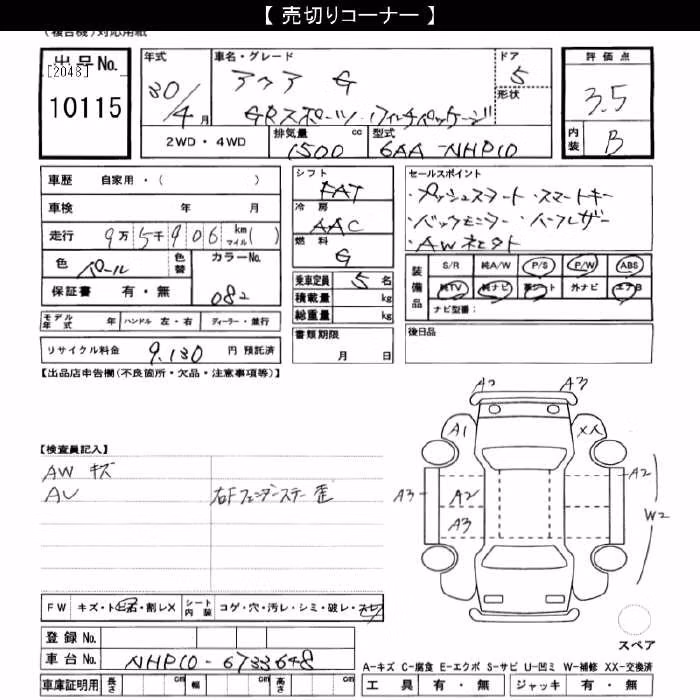 【 売切りコーナー 】
(複合機)対応用紙
出品No.
[2048]
10115
年式
30/4月
車名・グレード
アクア G
GRスポーツ・17インチパッケージ
ドア
5
形状
評価点
3.5
内装
B
2WD・4WD
排気量
1500 cc
型式
6AA-NHP10
車歴 自家用・( )
車検 年 月
走行 9万5千906 km マイル( )
色 パール
色替
カラーNo.
082
保証書 有・無
モデル年式 年
ハンドル 左・右
ディーラー・並行
リサイクル料金 9,130 円 預託済
シフト
FAT
冷房
AAC
燃料
G
乗車定員 5 名
積載量 kg
総重量 kg
書類期限
月 日
セールスポイント
・プッシュスタート・スマートキー
・バックモニター・ハーフレザー
装備品
S/R 純A/W P/S P/W ABS
純TV 純ナビ 革シート 外ナビ エアB
ナビ型番:
後日品
【出品店申告欄(不良箇所・欠品・注意事項等)】
【検査員記入】
AW キズ
AU
右Fフェンダーステー 歪
A2 A3
A1 XX
A3 A2 A2
A3 W2
スペア
FW キズ・ト石・割レX
シート内装 コゲ・穴・汚レ・シミ・破レ・スレ
登録 No.
車台 No. NHP10-6733648
車庫証明用 長さ cm 幅 cm 高さ cm
A-キズ C-腐食 E-エクボ S-サビ U-凹ミ W-補修 XX-交換済
工具 有・無 ジャッキ 有・無